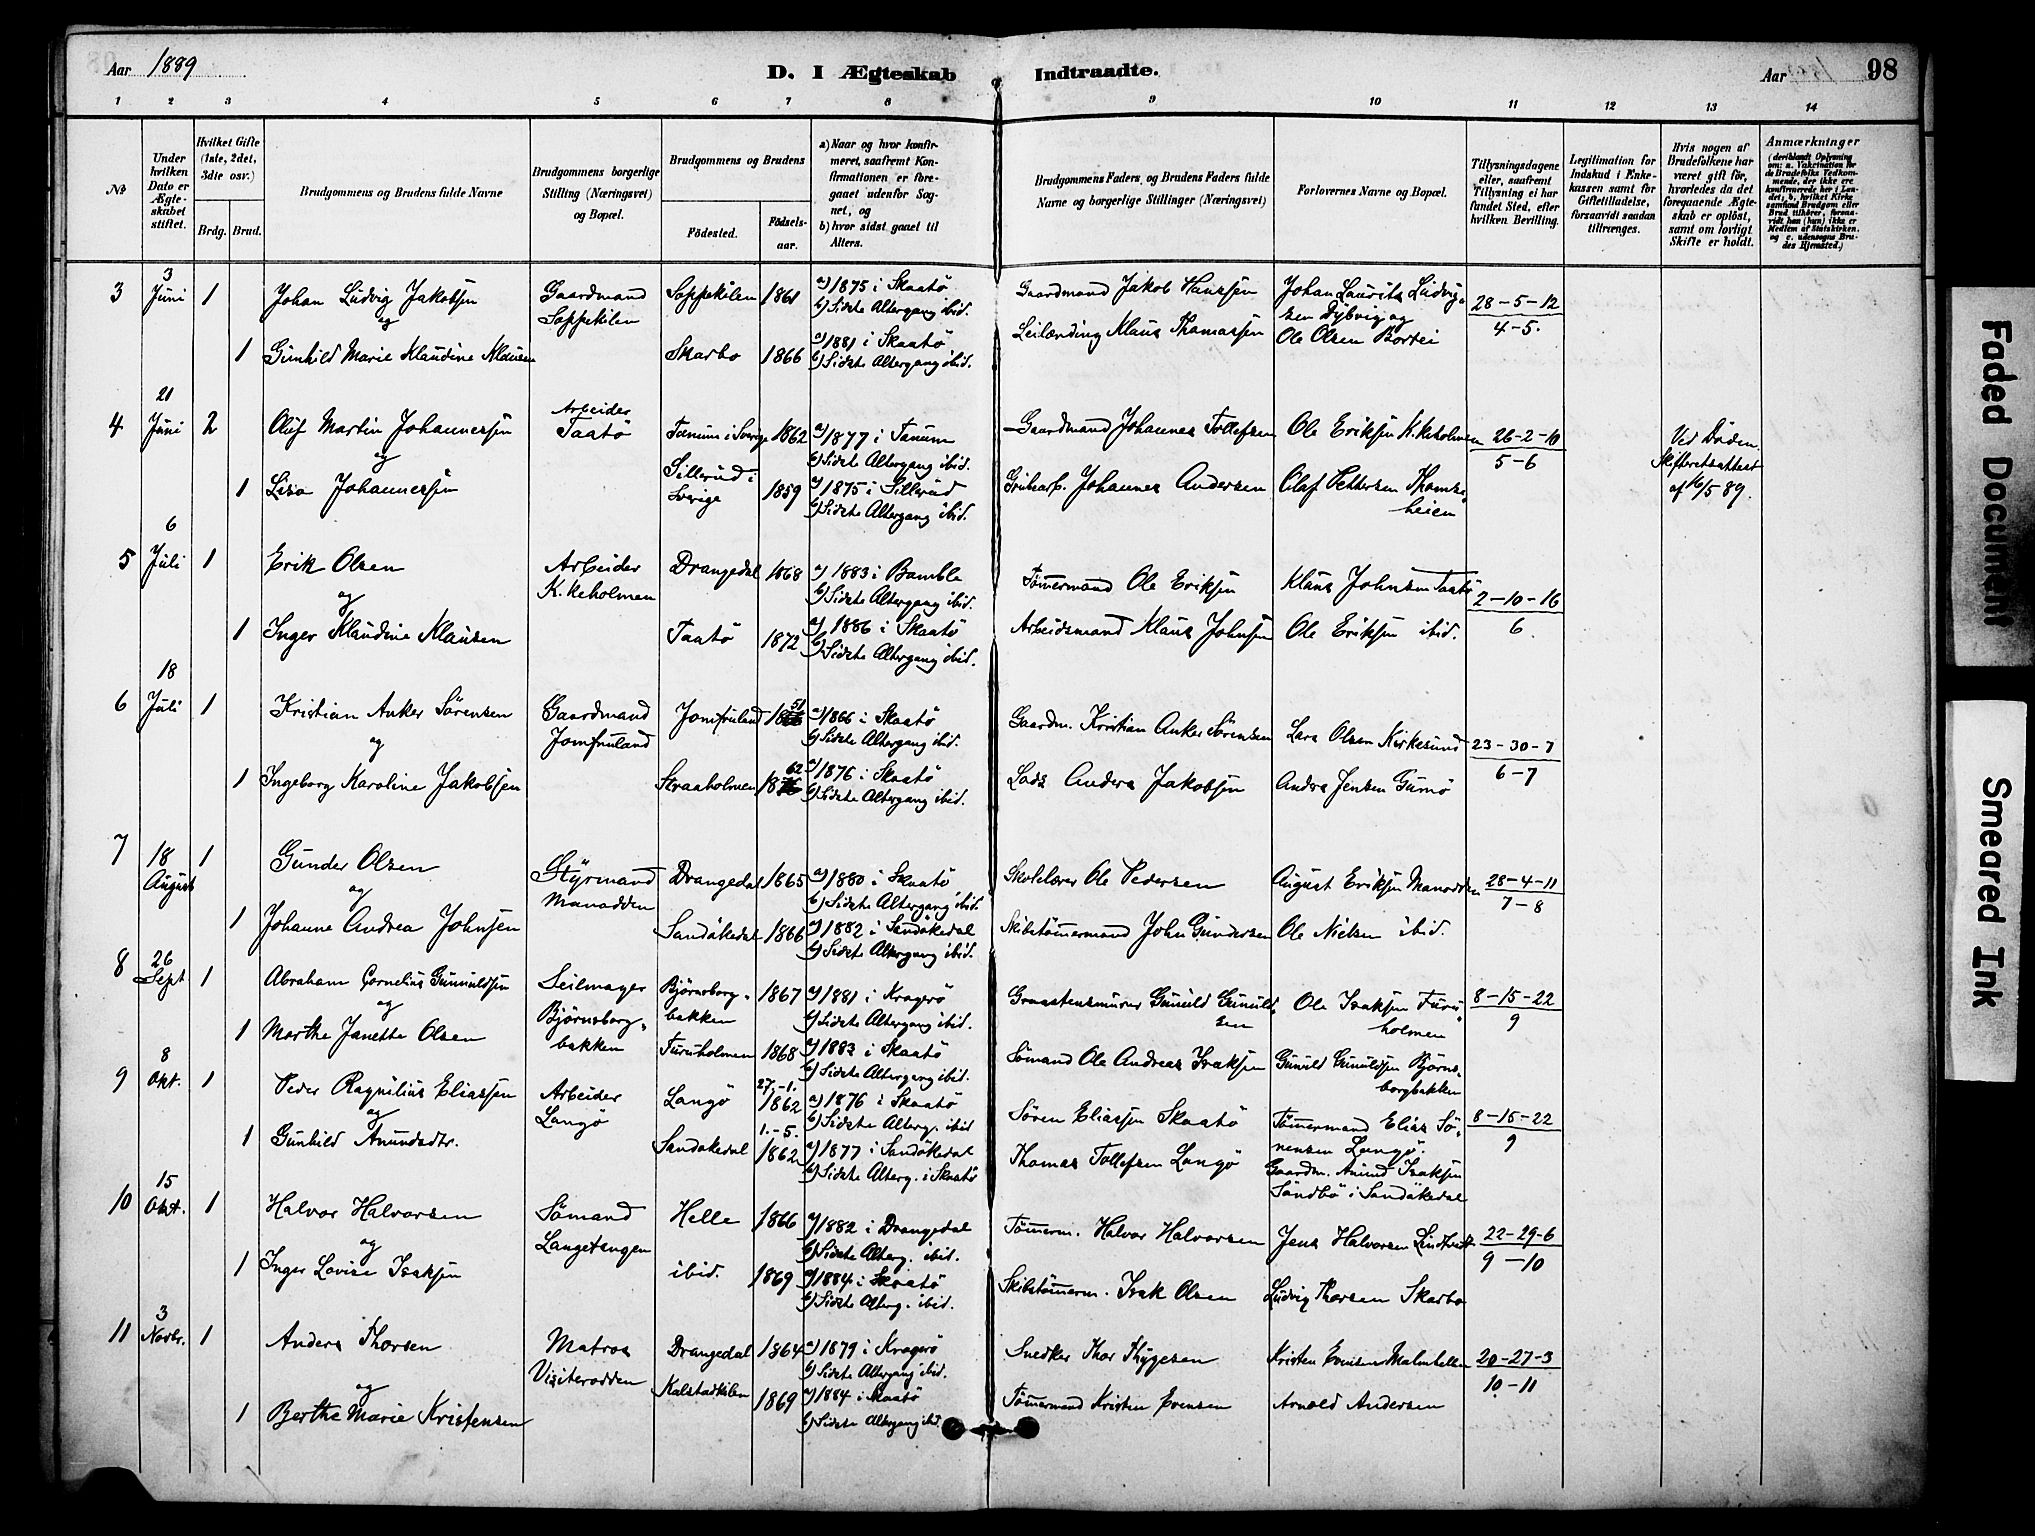 Aar 1889
D. I Ægteskab Indtraadte.
Aar
98
1 2 3 4 5 6 7 8 9 10 11 12 13 14
No
Under hvilken Dato er Ægteskabet stiftet.
Hvilket Gifte (1ste, 2det, 3die osv.)
Brdg. Brud.
Brudgommens og Brudens fulde Navne
Brudgommens borgerlige Stilling (Næringsvei) og Bopæl.
Brudgommens og Brudens
Födested.
Födsels-aar.
a) Naar og hvor konfirmeret, saafremt Konfirmationen er foregaaet udenfor Sognet, og
b) hvor sidst gaaet til Alters.
Brudgommens Faders og Brudens Faders fulde Navne og borgerlige Stillinger (Næringsvei)
Forlovernes Navne og Bopæl.
Tillysningsdagene eller, saafremt Tillysning ei har fundet Sted, efter hvilken Bevilling.
Legitimation for Indskud i Enkekassen samt for Giftetilladelse, forsaavidt saadan tiltrænges.
Hvis nogen af Brudefolkene har været gift för, hvorledes da det foregaaende Ægteskab er oplöst, samt om lovligt Skifte er holdt.
Anmærkninger
(deriblandt Oplysning om: a. Vakcination for de Brudefolks Vedkommende, der ikke ere konfirmerede her i Landet; b. hvilket Kirkesamfund Brudgom eller Brud tilhörer, forsaavidt han (hun) ikke er Medlem af Statskirken, og c. udensogns Brudes Hjemsted.)
3 3 Juni 1 Johan Ludvig Jakobsen Gaardmand Soppekilen Soppekilen 1861 a) 1875 i Skaatö
b) Sidste Altergang ibid. Gaardmand Jakob Hanssen Johan Laurits Ludvigsen Dybvig og 28-5-12
og
1 Gunhild Marie Klaudine Klausen Skarbo 1866 a) 1881 i Skaatö
b) Sidste Altergang ibid. Leilending Klaus Thomassen Ole Olsen Bortei 4-5.
4 21 Juni 2 Oluf Martin Johannessen Arbeider Taatö Tanum i Sverige 1862 a) 1877 i Tanum
b) Sidste Altergang ibid. Gaardmand Johannes Tollefsen Ole Eriksen K.keholmen 26-2-10 Ved Döden.
og
1 Lisa Johannessen Sillerud i Sverige 1859 a) 1875 i Sillerud
b) Sidste Altergang ibid. Johannes Andersen Olaf Pettersen 5-6 Skifteretsattest af /5 89.
5 6 Juli 1 Erik Olsen Arbeider K.keholmen Drangedal 1868 a) 1883 i Bamble
b) Sidste Altergang ibid. Tömmermand Ole Eriksen Klaus Johnsen Taatö 2-10-16
og
1 Inger Klaudine Klausen Taatö 1872 a) 1886 i Skaatö
b) Sidste Altergang ibid. Arbeidsmand Klaus Johnsen Ole Eriksen ibid. 6.
6 18 Juli 1 Kristian Anker Sörensen Gaardmand Jomfruland Jomfruland 1851 a) 1866 i Skaatö
b) Sidste Altergang ibid. Gaardm. Kristian Anker Sörensen Lars Olsen Kirkesund 23-30-7
og
1 Ingeborg Karoline Jakobsen Straaholmen 1862 a) 1876 i Skaatö
b) Sidste Altergang ibid. Lods Anders Jakobsen Anders Jensen Gumö 6-7
7 18 August 1 Gunder Olsen Styrmand Manodden Drangedal 1865 a) 1880 i Skaatö
b) Sidste Altergang ibid. Skolelærer Ole Pedersen August Eriksen Manodden 28-4-11
og
1 Johanne Andrea Johnsen Sandökedal 1866 a) 1882 i Sandökedal
b) Sidste Altergang ibid. Skibstömmermand John Gundersen Ole Nielsen ibid. 7-8
8 26 Sept 1 Abraham Cornelius Gunnuldsen Seilmager Björnsborgbakken Björnsborgbakken 1867 a) 1881 i Kragerö
b) Sidste Altergang ibid. Graastensmurer Gunuld Gunuldsen Ole Isaksen Furuholmen 8-15-22
og
1 Marthe Janette Olsen Furuholmen 1868 a) 1883 i Skaatö
b) Sidste Altergang ibid. Sömand Ole Andreas Isaksen Gunuld Gunuldsen Björnsborgbakken 9
9 8 Okt. 1 Peder Ragnilius Eliassen Arbeider Langö Langö 27.-1. 1862 a) 1876 i Skaatö
b) Sidste Alterg. ibid Sören Eliassen Skaatö Tömmermand Elias Sörensen Langö. 8-15-22
og
1 Gunhild Anundsdtr. Sandökedal 1.-5. 1862 a) 1877 i Sandökedal
b) Sidste Alterg. i Skaatö Thomas Tollefsen Langö Gaardm. Anund Isaksen Sandbö i Sandökedal 9
10 15 Okt. 1 Halvor Halvorsen Sömand Langetangen Helle 1866 a) 1882 i Drangedal
b) Sidste Alterg. ibid. Tömmerm. Halvor Halvorsen Jens Halvorsen 22-29-6
og
1 Inger Lovise Isaksen ibid. 1869 a) 1884 i Skaatö
b) Sidste Alterg. ibid. Skibstömmerm. Isak Olsen Ludvig Thorsen Skarbo 9-10
11 3 Novbr. 1 Anders Thorsen Matros Visiterodden Drangedal 1864 a) 1879 i Kragerö
b) Sidste Altergang ibid. Snedker Thor Thygesen Kristen Evensen Malmhella 20-27-3
og
1 Berthe Marie Kristensen Kalstadkilen 1869 a) 1884 i Skaatö
b) Sidste Altergang ibid Tömmermand Kristen Evensen Arnold Andersen 10-11
Faded Document
Smeared Ink